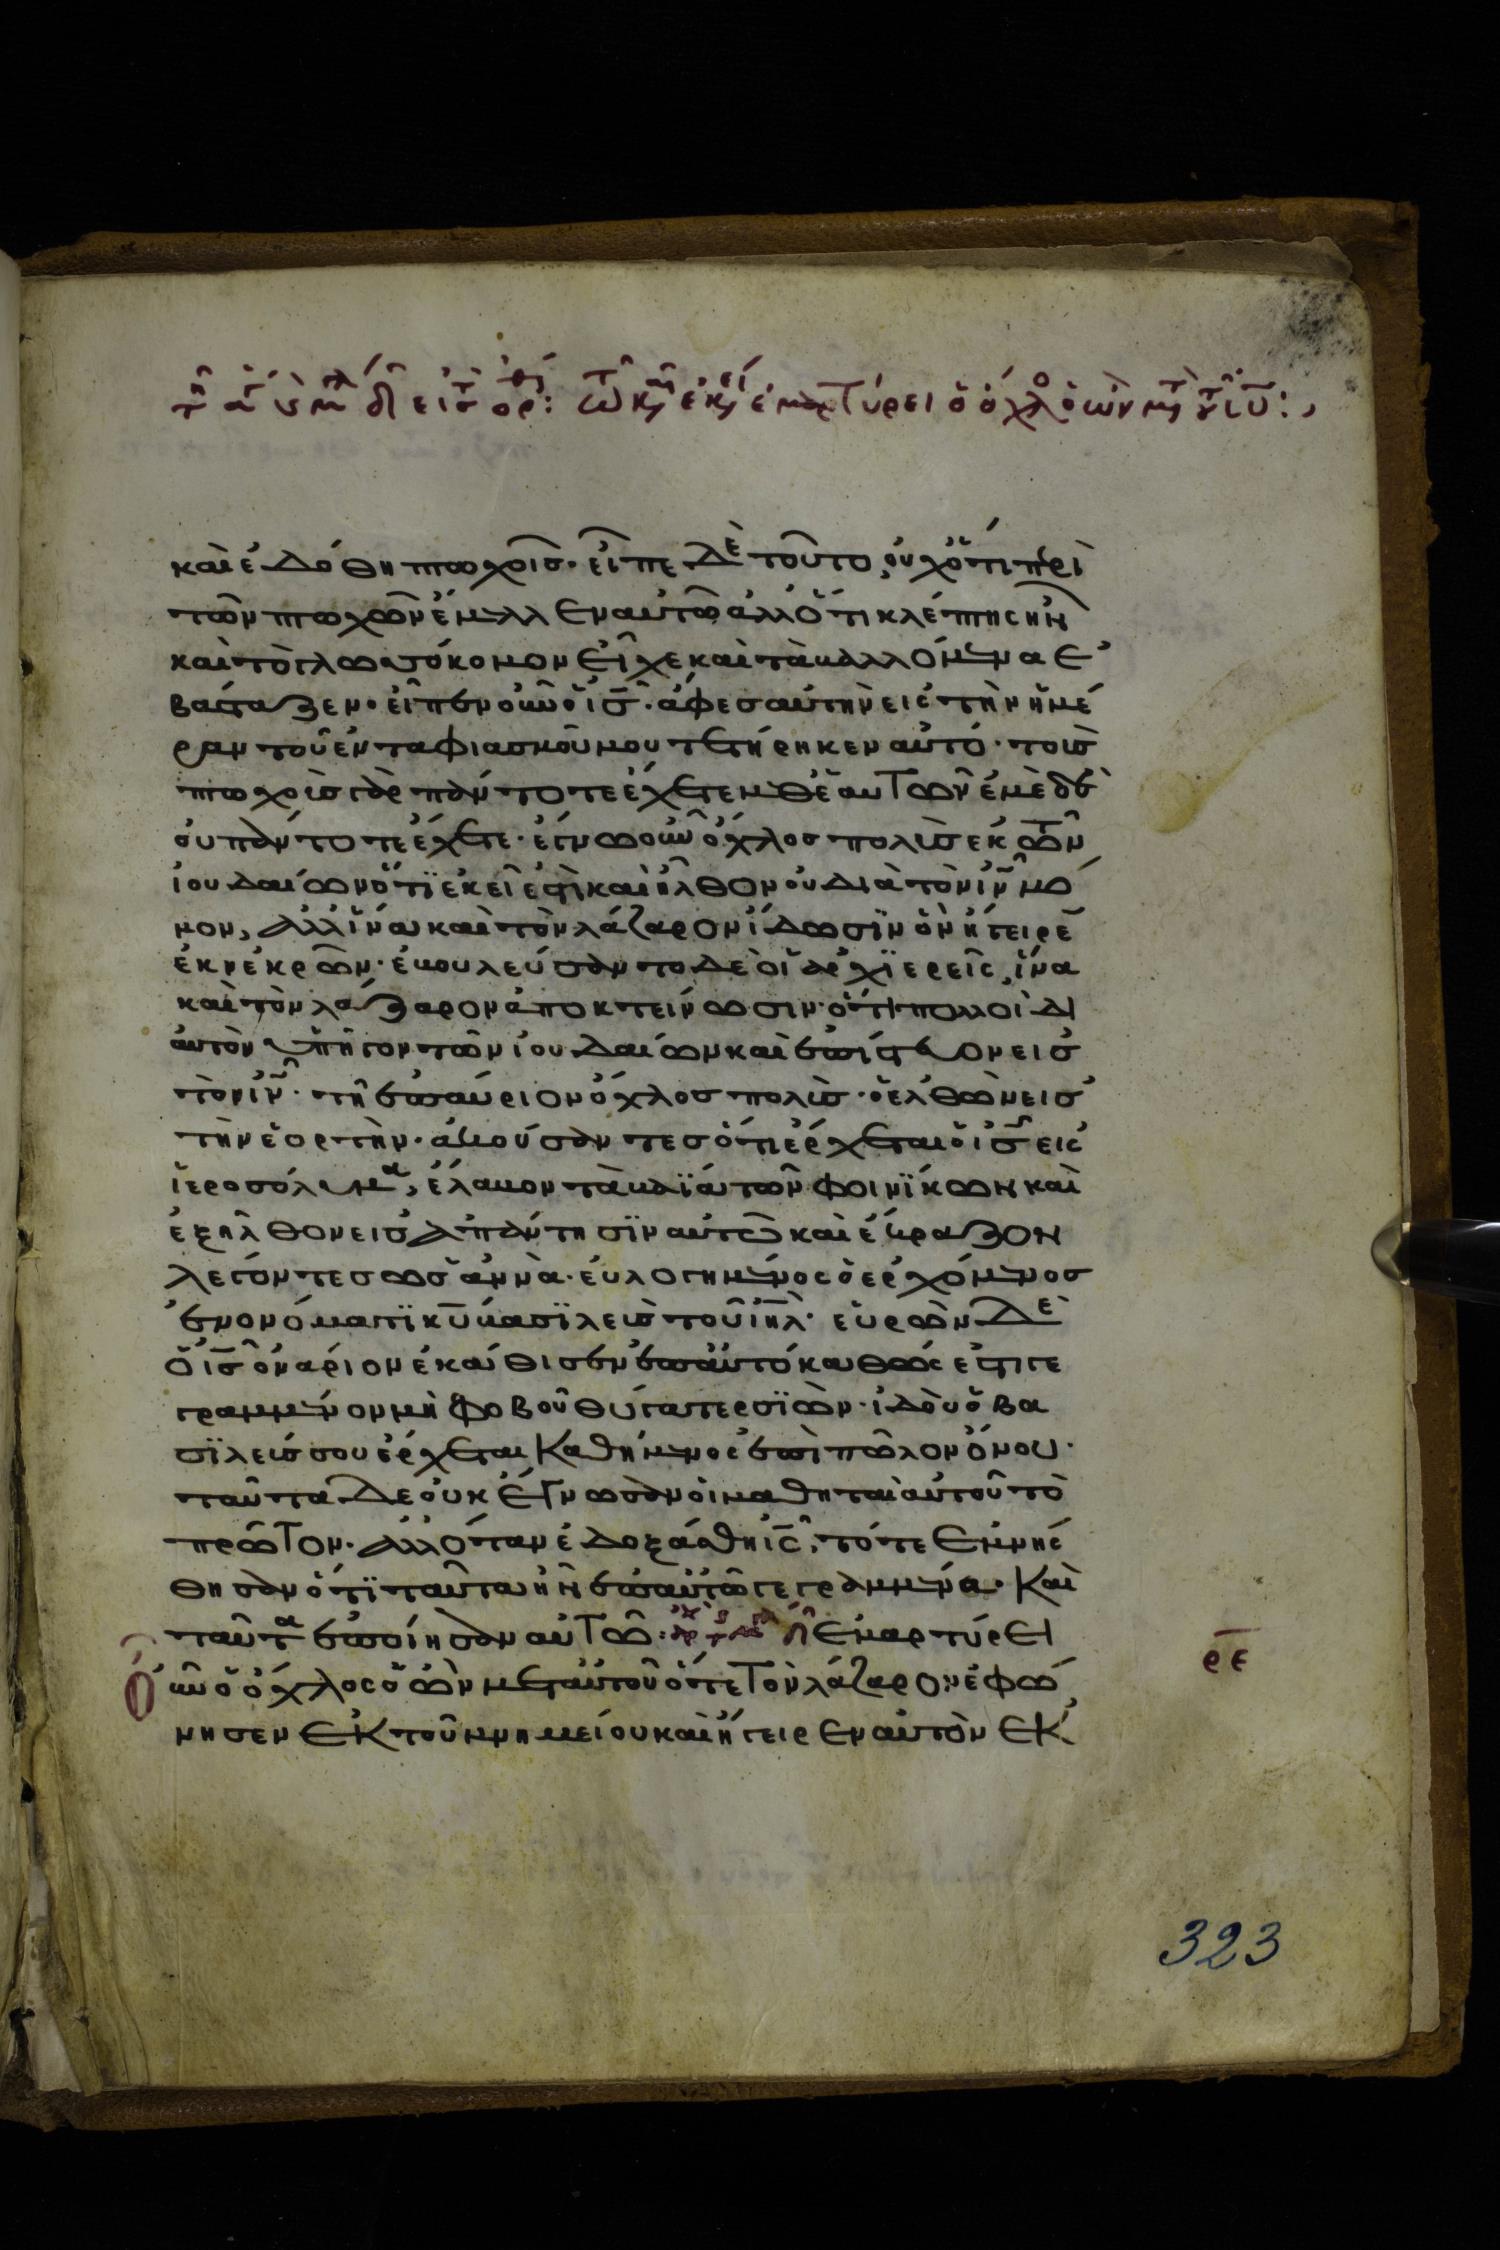 τῷ καιρῷ ἐκείνῳ ἐμαρτύρει ὁ ὄχλος ὁ ὢν μετὰ τοῦ ἰυ:
καὶ ἐδόθη πτωχοῖς· εἶπε δὲ τοῦτο, οὐχ ὅτι περὶ
τῶν πτωχῶν ἔμελλεν αὐτῶ ἀλλ ὅτι κλέπτης ἦν
καὶ τὸ γλωσσόκομον εἶχε καὶ τὰ βαλλόμενα ἐ
βάσταζεν· εἶπεν οὖν ὁ ἰς· ἄφες αὐτὴν εἰς τὴν ἡμέ
ραν τοῦ ἐνταφιασμοῦ μου τετήρηκεν αὐτό· τοὺς
πτωχοὺς γὰρ πάντοτε ἔχετε μεθ ἑαυτῶν ἐμὲ δὲ
οὐ πάντοτε ἔχετε· ἔγνω οὖν ὄχλος πολὺς ἐκ τῶν
ἰουδαίων ὅτι ἐκεῖ ἐστὶ καὶ ἦλθον οὐ διὰ τὸν ἰν μό
νον, ἀλλ ἵνα καὶ τὸν λάζαρον ἴδωσιν ὃν ἤγειρε
ἐκ νεκρῶν· ἐβουλεύσαντο δὲ οἱ ἀρχιερεῖς, ἵνα
καὶ τὸν λάζαρον ἀποκτείνωσιν· ὅτι πολλοὶ δι
αὐτὸν ὑπῆγον τῶν ἰουδαίων καὶ ἐπίστευον εἰς
τὸν ἰν· τῇ ἐπαύριον ὄχλος πολὺς· ὁ ἐλθὼν εἰς
τὴν ἑορτὴν· ἀκούσαντες ὅτι ἔρχεται ὁ ις εἰς
ἱεροσόλυμα, ἔλαβον τὰ βαΐα τῶν φοινίκων καὶ
ἐξῆλθον εἰς ἀπάντησιν αὐτῶ καὶ ἔκραζον
λέγοντες ὡσαννὰ· εὐλογημένος ὁ ἐρχόμενος
ἐν ὀνόματι κυ βασιλεὺς τοῦ ἰηλ· εὑρὼν δὲ
ὁ ις ὀνάριον ἐκάθισεν ἐπ αὐτό καθώς ἐστι γε
γραμμένον μὴ φοβοῦ θύγατερ σιὼν· ἰδοὺ ὁ βα
σιλεύς σου ἔρχεται καθήμενος ἐπὶ πῶλον ὄνου·
ταῦτα δὲ οὐκ ἔγνωσαν οἱ μαθηταὶ αὐτοῦ τὸ
πρῶτον· ἀλλ ὅταν ἐδοξάσθη ις, τότε ἐμνήσ
θησαν ὅτι ταῦτα ἦν ἐπ αὐτῶ γεγραμμένα· καὶ
ταῦτα ἐποίησαν αὐτῶ: ἐμαρτύρει
οὖν ὁ ὄχλος ὁ ὢν μετ αὐτοῦ ὅτε τὸν λάζαρον ἐφώ
νησεν ἐκ τοῦ μνημείου καὶ ἤγειρεν αὐτὸν ἐκ
ρε
323